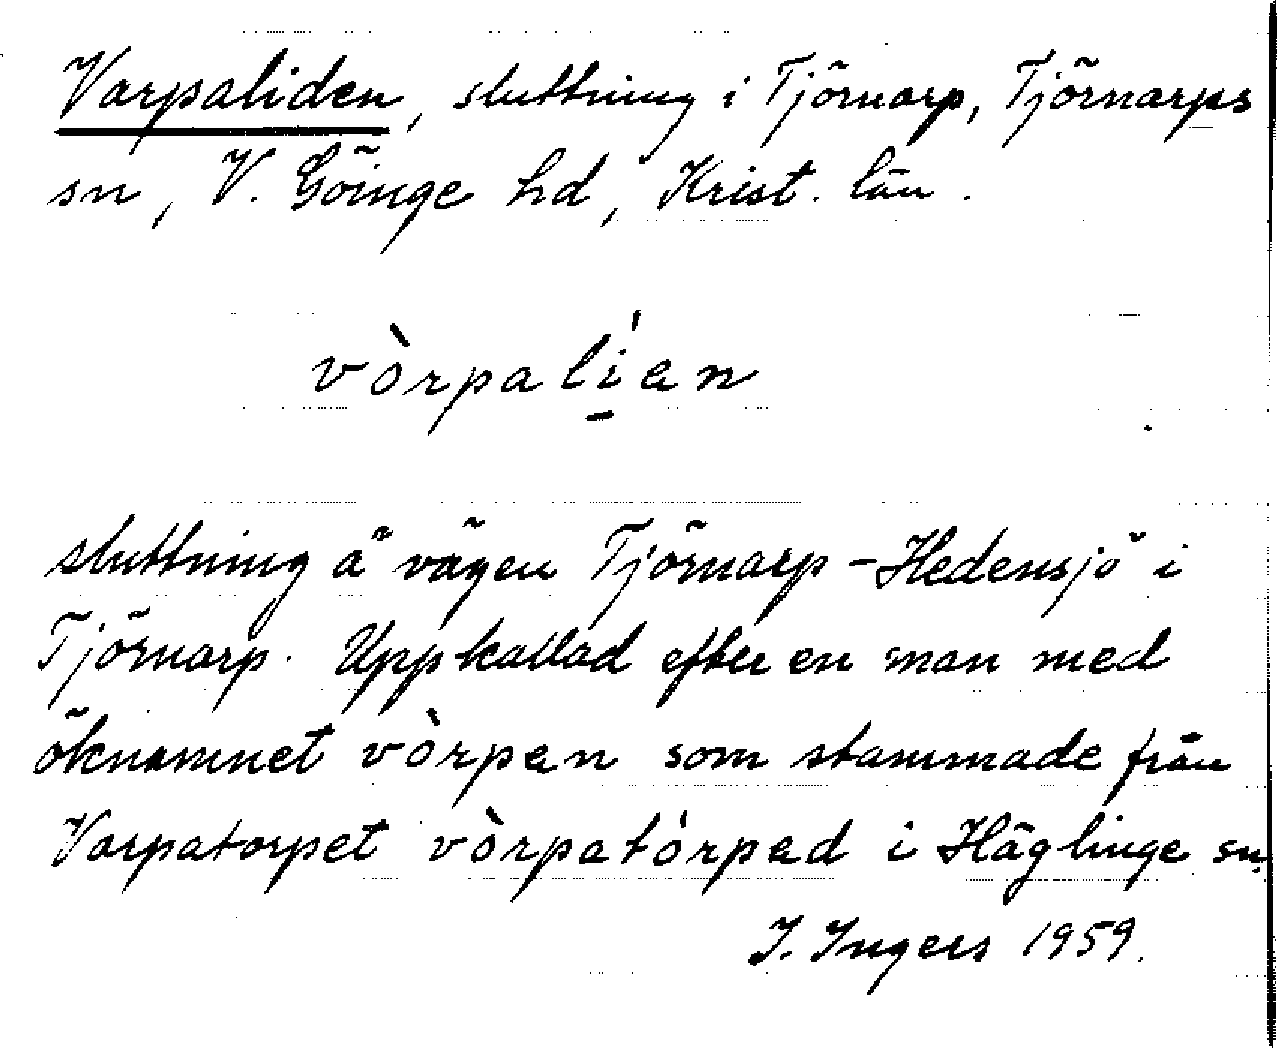 Varpaliden, sluttning i Tjörnarp, Tjörnarps
sn, V. Göinge hd, Krist. län.
vòrpalían
sluttning å vägen Tjörnarp-Hedensjö i
Tjörnarp. Uppkallad efter en man med
öknamnet vòrpan som stammade från
Varpatorpet vòrpatórpad i Häglinge sn.
I. Ingers 1959.